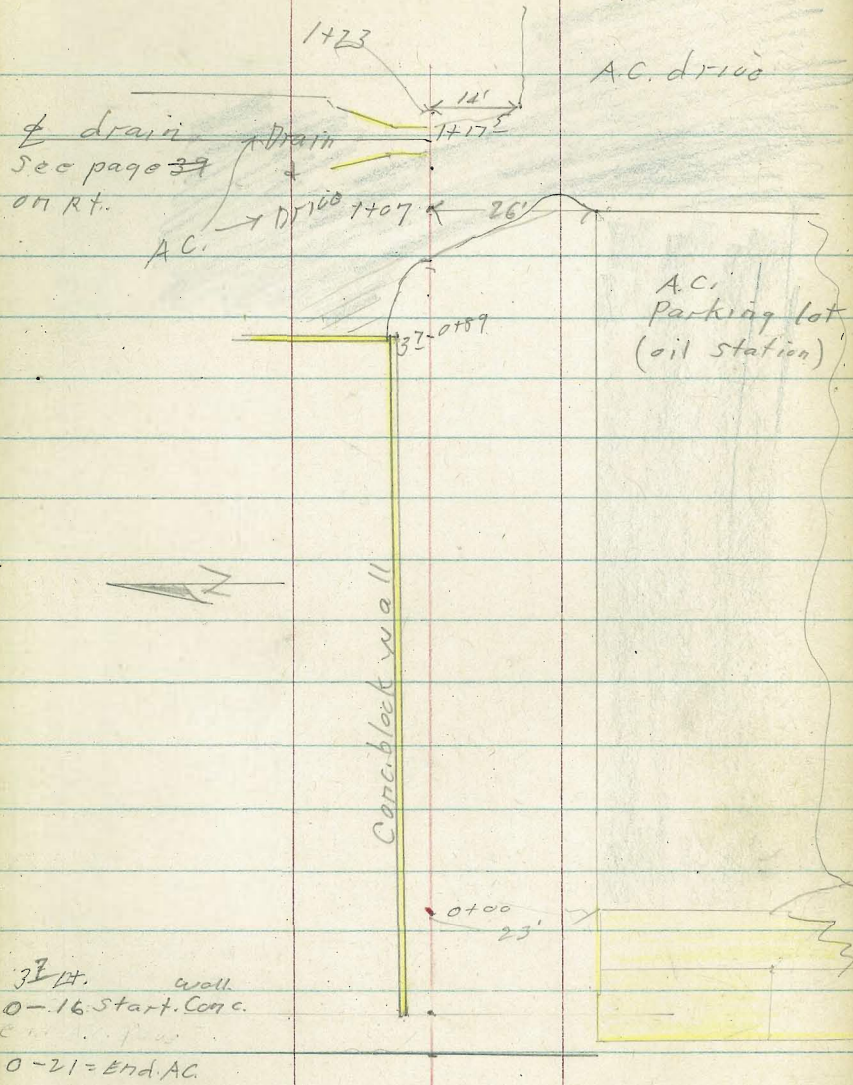 1+23
A.C. drive
14'
℄ drain
Drain
1+17⁵
See page 39
&
on Rt.
Drive 1+07
26'
A.C.
A.C.
Parking lot
(oil station)
3⁷-0+89
N
Conc. block wall
0+00
23'
3⁷ Lt.
wall
0-16 Start. Conc.
0-21 = End. AC.